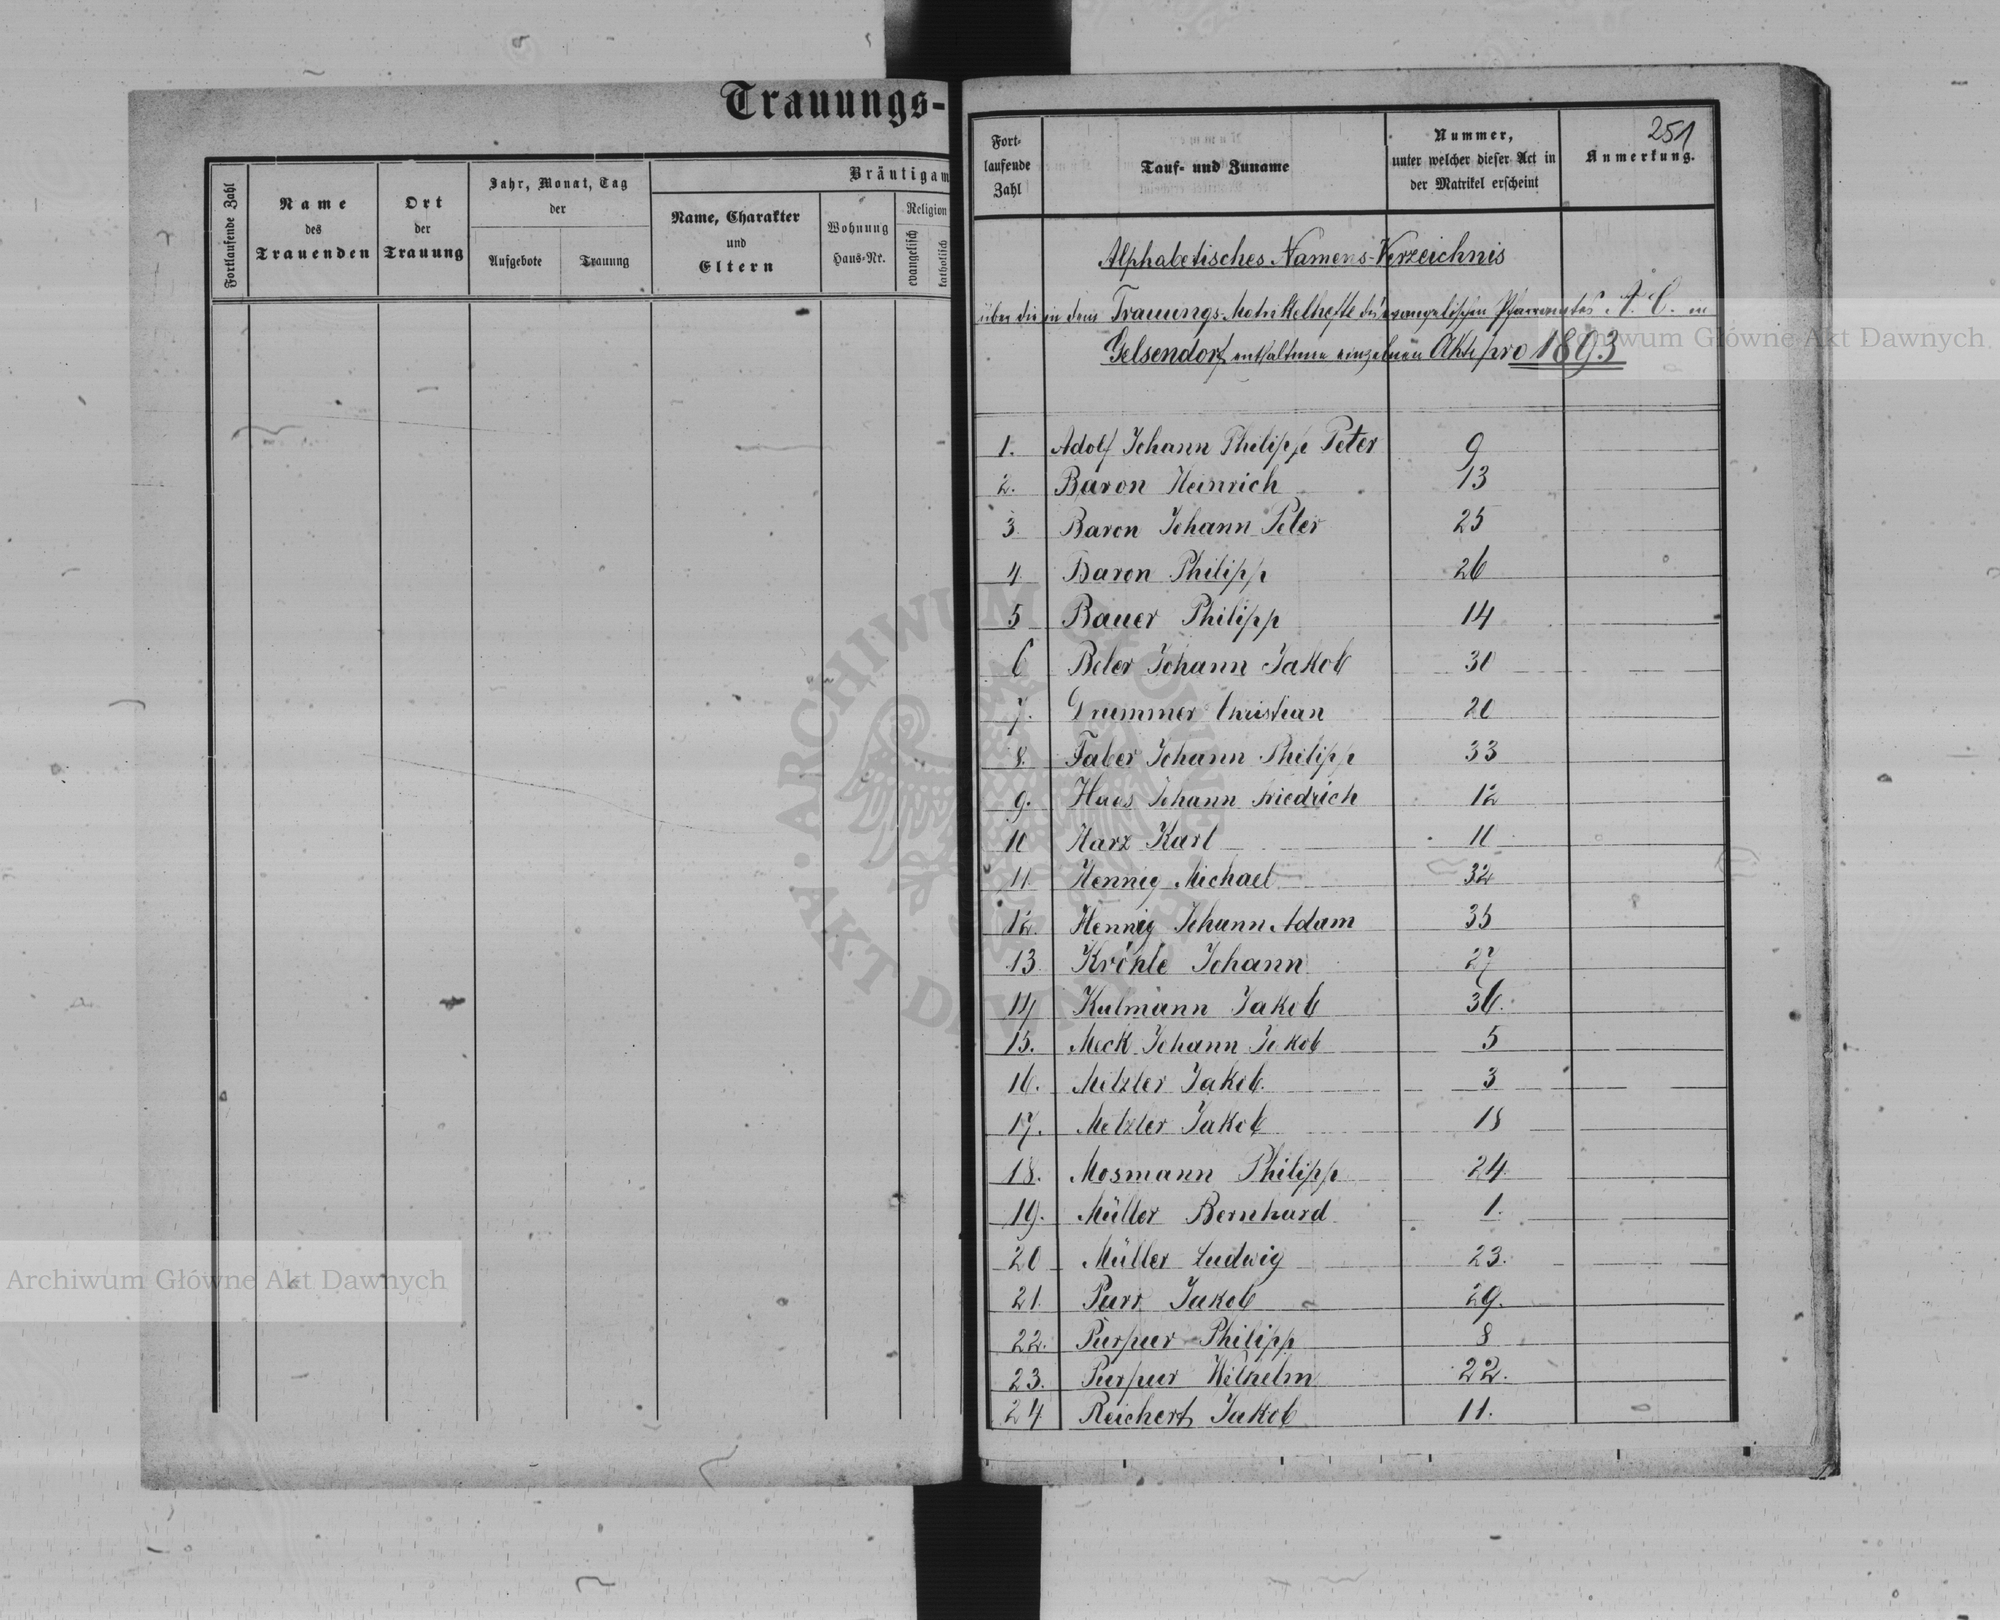 Trauungs-
Fortlaufende Zahl
Name
des
Trauenden
Ort
der
Trauung
Jahr, Monat, Tag
der
Aufgebote
Trauung
Bräutigam
Name, Charakter
und
Eltern
Wohnung
Haus-Nr.
Religion
evangelisch
katholisch
251
Fort-
laufende
Zahl
Tauf- und Zuname
Nummer,
unter welcher dieser Act in
der Matrikel erscheint
Anmerkung.
Alphabetisches Namens-Verzeichnis
über die in dem Trauungs-Matrikelhefte des evangelischen Pfarramtes A. C. in
Gelsendorf enthaltenen einzelnen Akte pro 1893
1. Adolf Johann Philipp Peter 9
2. Baron Heinrich 13
3. Baron Johann Peter 25
4 Baron Philipp 26
5 Bauer Philipp 14
6 Beler Johann Jakob 30
7. Drummer Christian 20
8. Faber Johann Philipp 33
9. Haas Johann Friedrich 12
10 Harz Karl 10
11. Hennig Michael 32
12. Hennig Johann Adam 35
13 Kröhle Johann 27
14 Kulmann Jakob 36.
15. Meck Johann Jakob 5
16. Metzler Jakob. 3
17. Metzler Jakob 18
18. Mosmann Philipp 24
19. Müller Bernhard 1.
20 Müller Ludwig 23.
21. Parr Jakob 29.
22. Purpur Philipp 8
23. Purpur Wilhelm 22.
24 Reichert Jakob 11.
Archiwum Główne Akt Dawnych
Archiwum Główne Akt Dawnych
ARCHIWUM GŁÓWNE • AKT DAWNYCH •